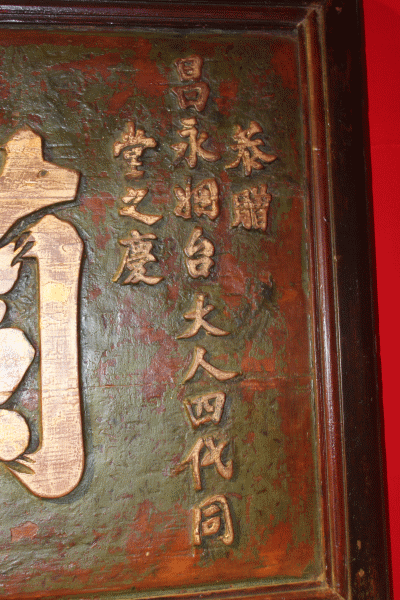 恭贈
昌永姻台大人四代同
堂之慶